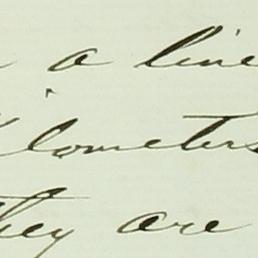 a line
kilometers
they are